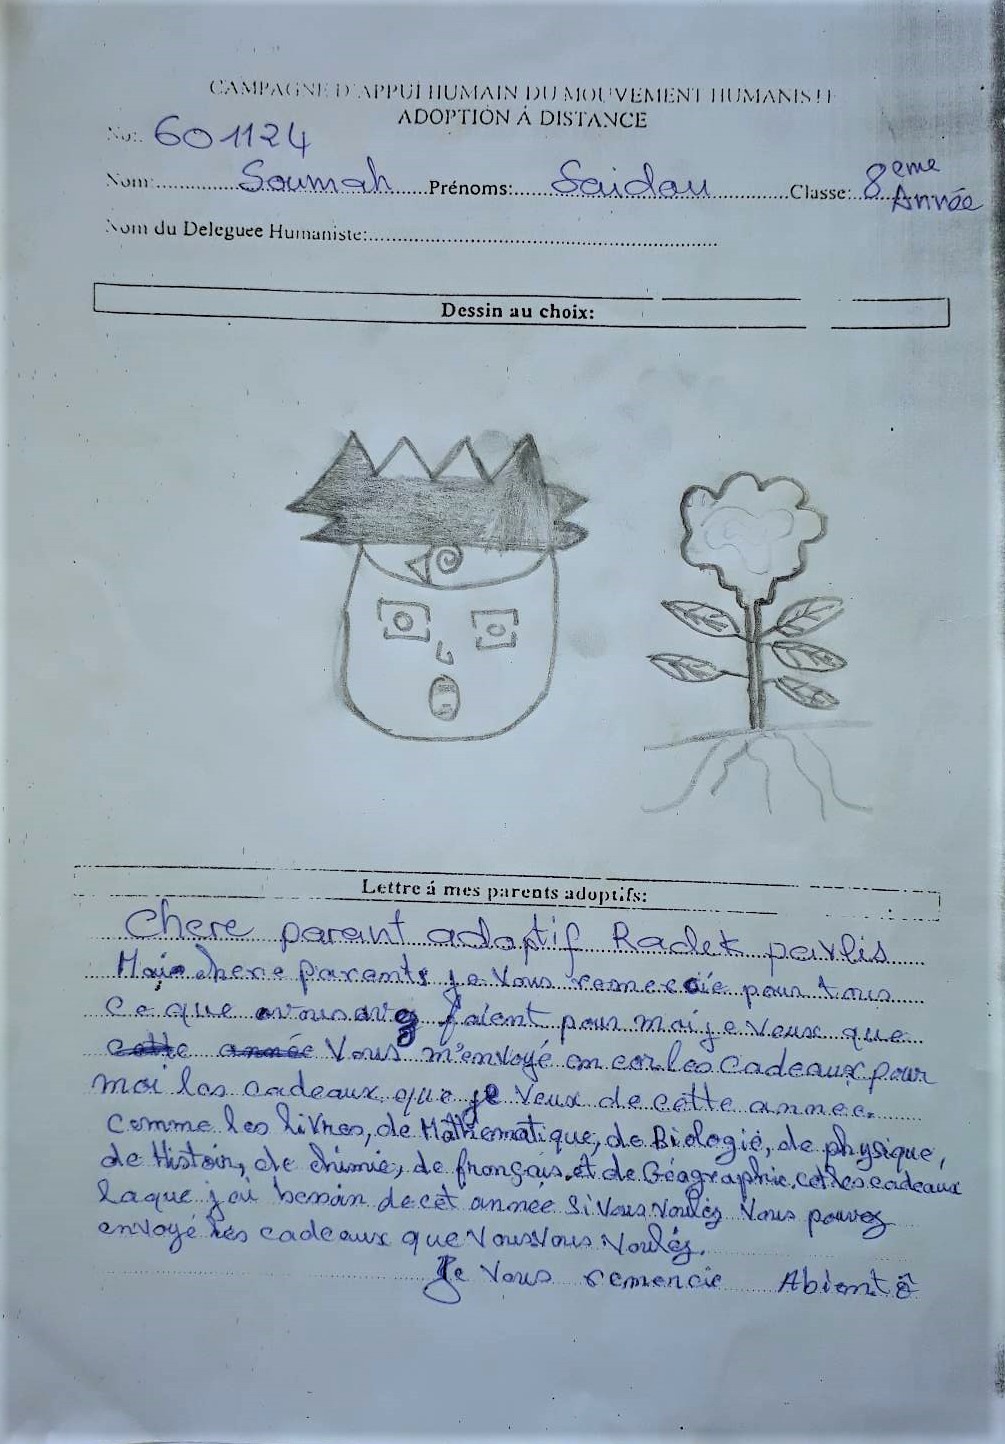 CAMPAGNE D'APPUI HUMAIN DU MOUVEMENT HUMANISTE
ADOPTION Á DISTANCE
No: 601124
Nom: Soumah Prénoms: Saidou Classe: 8ème Année
Nom du Deleguee Humaniste:
Dessin au choix:
Lettre á mes parents adoptifs:
Chere parent adoptif Radek pavlis
Mais chere parents je vous remercié pour tous
ce que avous avez faient pour mai je veux que
cette année Vous m'envoyé encor les cadeaux pour
moi les cadeaux que je veux de cette annee.
Comme les livres, de Mathematique, de Biologie, de physique,
de Histoir, de chimie, de français et de Géagraphie, cet les cadeaux
laque j'ai besoin de cet année si vous voulez vous pouvez
envoyé les cadeaux que vous vous voulés.
Je vous remercie Abientô